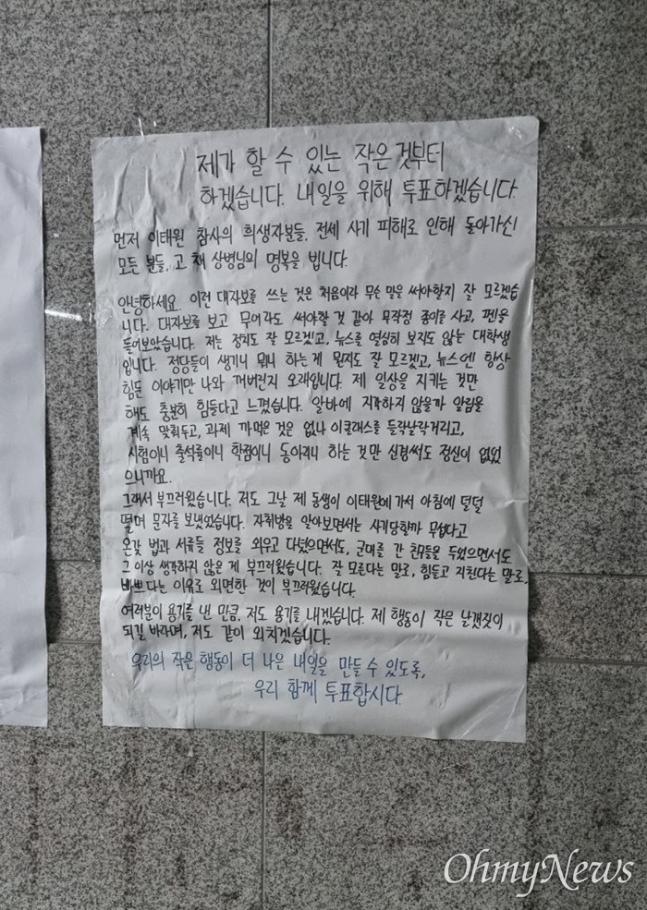 제가 할 수 있는 작은 것부터
하겠습니다. 내일을 위해 투표하겠습니다.
먼저 이태원 참사의 희생자분들, 전세 사기 피해로 인해 돌아가신
모든 분들, 고 채 상병님의 명복을 빕니다.
안녕하세요. 이런 대자보를 쓰는 것은 처음이라 무슨 말을 써야할지 잘 모르겠습
니다. 대자보를 보고 무어라도 써야할 것 같아 무작정 종이를 사고, 펜을
들어보았습니다. 저는 정치도 잘 모르겠고, 뉴스를 열심히 보지도 않는 대학생
입니다. 정당들이 생기니 뭐니 하는 게 뭔지도 잘 모르겠고, 뉴스엔 항상
힘든 이야기만 나와 꺼버린지 오래입니다. 제 일상을 지키는 것만
해도 충분히 힘들다고 느꼈습니다. 알바에 지각하지 않을까 알람을
계속 맞춰두고, 과제 까먹은 것은 없나 이클래스를 들락날락거리고,
시험이니 출석률이니 학점이니 동아리니 하는 것만 신경써도 정신이 없었
으니까요.
그래서 부끄러웠습니다. 저도 그날 제 동생이 이태원에 가서 아침에 덜덜
떨며 문자를 보냈었습니다. 자취방을 알아보면서는 사기당할까 무섭다고
온갖 법과 서류들 정보를 외우고 다녔으면서도, 군대를 간 친구들을 두었으면서도
그 이상 생각하지 않은 게 부끄러웠습니다. 잘 모른다는 말로, 힘들고 지친다는 말로,
바쁘다는 이유로 외면한 것이 부끄러웠습니다.
여러분이 용기를 낸 만큼, 저도 용기를 내겠습니다. 제 행동이 작은 날갯짓이
되길 바라며, 저도 같이 외치겠습니다.
우리의 작은 행동이 더 나은 내일을 만들 수 있도록,
우리 함께 투표합시다.
OhmyNews